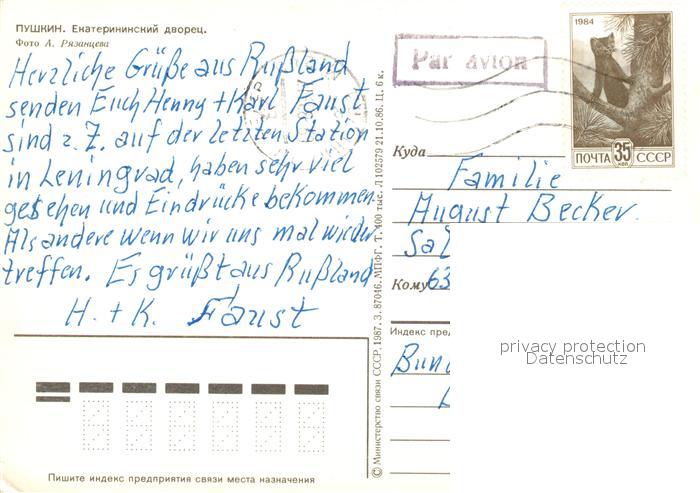 ПУШКИН. Екатерининский дворец.
Фото А. Рязанцева
Herzliche Grüße aus Rußland
senden Euch Henny + Karl Faust
sind z. Z. auf der letzten Station
in Leningrad, haben sehr viel
gesehen und Eindrücke bekommen.
Als andere wenn wir uns mal wieder
treffen. Es grüßt aus Rußland
H. + K. Faust
Пишите индекс предприятия связи места назначения
© Министерство связи СССР, 1987. З. 87046. МПФГ. Т. 400 тыс. Л 102579 21.10.86. Ц. 6 к.
Par avion
1984
ПОЧТА 35 КОП СССР
Куда
Familie
August Becker
Sal
Кому 63
Индекс пред
Bun
privacy protection
Datenschutz